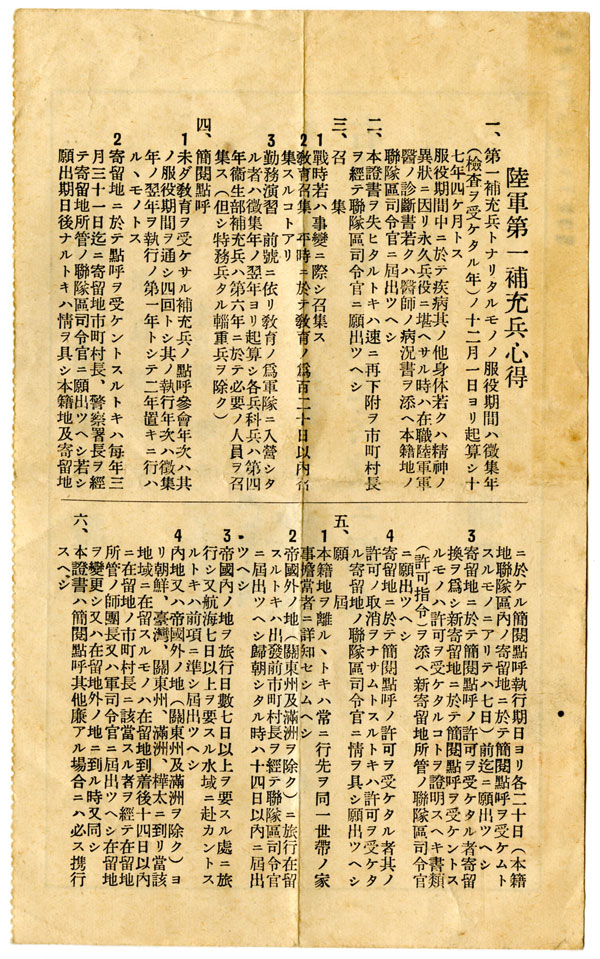 陸軍第一補充兵心得
一、第一補充兵トナリタルモノノ服役期間ハ徴集年
(檢査ヲ受ケタル年)ノ十二月一日ヨリ起算シ十
七年四ケ月トス
服役期間中ニ於テ疾病其ノ他身体若クハ精神ノ
異狀ニ因リ永久兵役ニ堪ヘサル時ハ在職陸軍軍
醫ノ診斷書若クハ醫師ノ病況書ヲ添ヘ本籍地ノ
聯隊區司令官ニ屆出ツヘシ
二、本證書ヲ失ヒタルトキハ速ニ再下附ヲ市町村長
ヲ經テ聯隊區司令官ニ願出ツヘシ
三、召集
1 戰時若ハ事變ニ際シ召集ス
2 教育召集 平時ニ於テ教育ノ爲百二十日以內召
集スルコトアリ
3 勤務演習 前號ニ依リ教育ノ爲軍隊ニ入營シタ
ル者ハ徴集年ノ翌年ヨリ起算シ各兵科兵ハ第四
年衞生部補充兵ハ第六年ニ於テ必要ノ人員ヲ召
集ス(但シ特務兵タル輜重兵ヲ除ク)
四、簡閱點呼
1 未ダ教育ヲ受ケサル補充兵ノ點呼參會年次ハ其
ノ服役期間ヲ通シ四回トシ其ノ執行年次ハ徴集
年ノ翌年ヲ執行ノ第一年トシテ二年置キニ行ハ
ルヽモノトス
2 寄留地ニ於テ點呼ヲ受ケントスルトキハ每年三
月三十一日迄ニ寄留地市町村長、警察署長ヲ經
テ寄留地所管ノ聯隊區司令官ニ願出ツヘシ若シ
願出期日後ナルトキハ情ヲ具シ本籍地及寄留地
ニ於ケル簡閱點呼執行期日ヨリ各二十日(本籍
地聯隊區內ノ寄留地ニ於テ簡閱點呼ヲ受ケムト
スルモノニアリテハ七日)前迄ニ願出ツヘシ
3 寄留地ニ於テ簡閱點呼ノ許可ヲ受ケタル者寄留
換ヲ爲シ新寄留地ニ於テ簡閱點呼ヲ受ケントス
ルモノハ許可ヲ受ケタルコトヲ證明スヘキ書類
(許可指令)ヲ添ヘ新寄留地所管ノ聯隊區司令官
ニ願出ツヘシ
4 寄留地ニ於テ簡閱點呼ノ許可ヲ受ケタル者其ノ
許可ノ取消ヲナサムトスルトキハ許可ヲ受ケタ
ル寄留地ノ聯隊區司令官ニ情ヲ具シ願出ツヘシ
五、願屆
1 本籍地ヲ離ルヽトキハ常ニ行先ヲ同一世帶ノ家
事擔當者ニ詳知セシムヘシ
2 帝國外ノ地(關東州及滿洲ヲ除ク)ニ旅行在留
スルトキハ出發前市町村長ヲ經テ聯隊區司令官
ニ屆出ツヘシ歸朝シタル時ハ十四日以內ニ屆出
ツヘシ
3 帝國內ノ地ヲ旅行日數七日以上ヲ要スル處ニ旅
行シ又航海七日以上ヲ要スル水域ニ赴カントス
ルトキハ前項ニ準シ屆出ツヘシ
4 內地又ハ帝國外ノ地(關東州及滿洲ヲ除ク)ヨ
リ朝鮮、臺灣、關東州、滿洲、樺太ニ到リ當該
地域ニ在留スルモノハ在留地到着後十四日以內
ニ在留地ノ市町村長ニ該當スル者ヲ經テ在留地
所管ノ師團長又ハ軍司令官ニ屆出ツヘシ在留地
ヲ變更シ又ハ在留地外ノ地ニ到ル時又同シ
六、本證書ハ簡閱點呼其他廉アル場合ニハ必ス携行
スヘシ